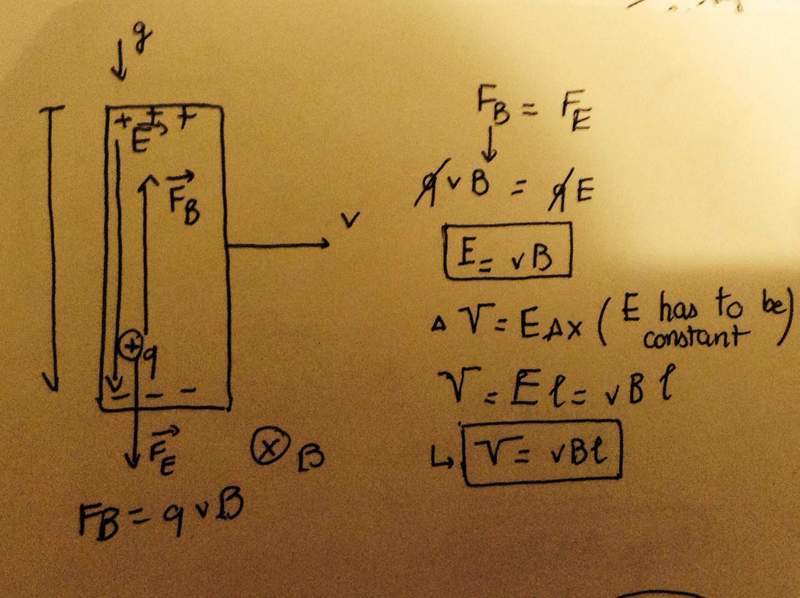 g
+ + +
E
F_B
v
+
q
- - -
F_E
x B
F_B = q v B
F_B = F_E
q v B = q E
E = vB
Δ V = E Δx (E has to be constant)
V = E ℓ = vBℓ
V = vBℓ